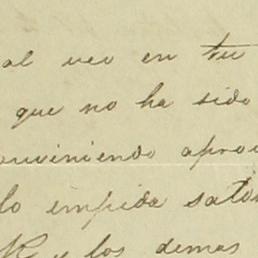 al ver en tu
que no ha sido
conviniendo apro
lo impida sat
K y los demas